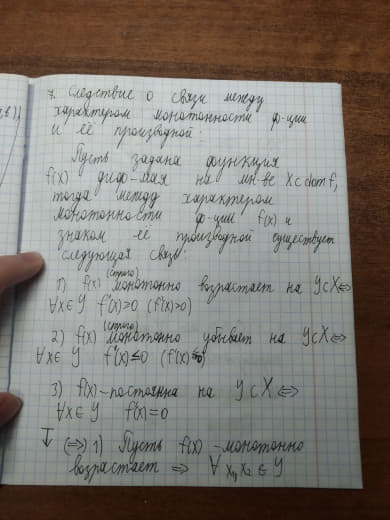 7. Следствие о связи между
характером монотонности ф-ции
и её производной:
Пусть задана функция
f(x) диф-мая на мн-ве X⊂domf,
тогда между характером
монотонности ф-ции f(x) и
знаком её производной существует
следующая связь:
1) f(x) (строго) монотонно возрастает на Y⊂X⇔
∀x∈Y f'(x)≥0 (f'(x)>0)
2) f(x) (строго) монотонно убывает на Y⊂X⇔
∀x∈Y f'(x)≤0 (f'(x)<0)
3) f(x) – постоянна на Y⊂X ⇔
∀x∈Y f'(x)=0
(⇒) 1) Пусть f(x) – монотонно
возрастает ⇒ ∀ x₁, x₂ ∈ Y